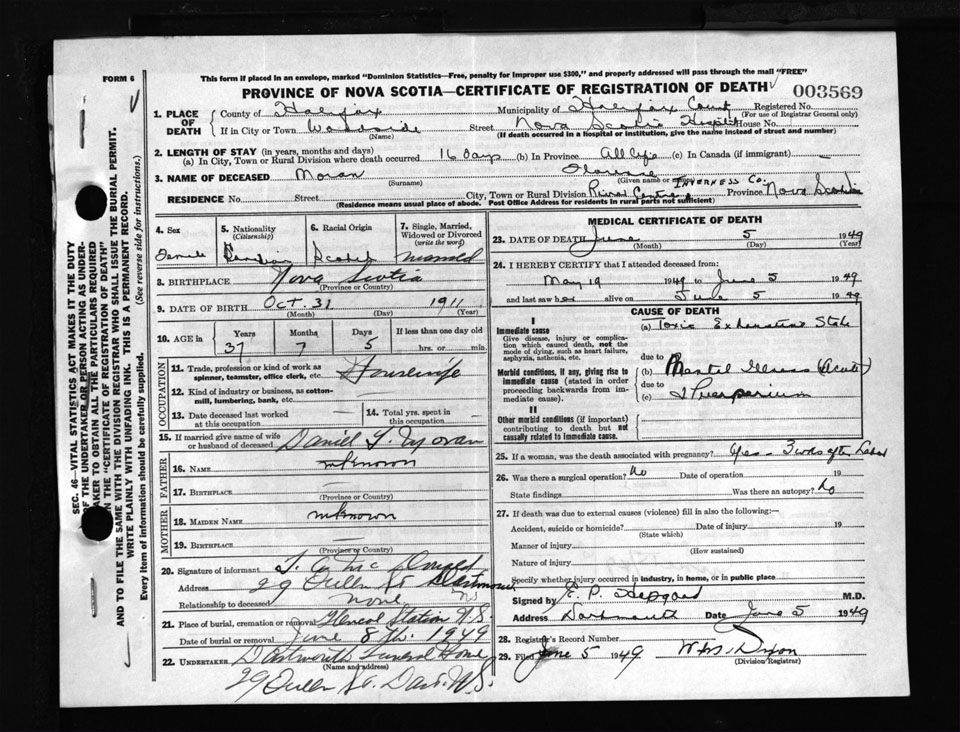 FORM 6
This form if placed in an envelope, marked "Dominion Statistics—Free, penalty for improper use $300," and properly addressed will pass through the mail "FREE"
PROVINCE OF NOVA SCOTIA—CERTIFICATE OF REGISTRATION OF DEATH
003569
SEC. 46—VITAL STATISTICS ACT MAKES IT THE DUTY OF THE UNDERTAKER OR PERSON ACTING AS UNDERTAKER TO OBTAIN ALL THE PARTICULARS REQUIRED IN THE "CERTIFICATE OF REGISTRATION OF DEATH" AND TO FILE THE SAME WITH THE DIVISION REGISTRAR WHO SHALL ISSUE THE BURIAL PERMIT.
WRITE PLAINLY WITH UNFADING INK. THIS IS A PERMANENT RECORD.
Every item of information should be carefully supplied. (See reverse side for instructions.)
1. PLACE OF DEATH
County of Halifax Municipality of Halifax County Registered No.
(For use of Registrar General only)
If in City or Town Woodside Street Nova Scotia Hospital House No.
(Name) (If death occurred in a hospital or institution, give the name instead of street and number)
2. LENGTH OF STAY (in years, months and days)
(a) In City, Town or Rural Division where death occurred 16 days (b) In Province All life (c) In Canada (if immigrant) —
3. NAME OF DECEASED Moran Florence
(Surname) (Given name or names)
RESIDENCE No. Street City, Town or Rural Division River Centre INVERNESS Co. Province Nova Scotia
(Residence means usual place of abode. Post Office Address for residents in rural parts not sufficient)
4. Sex
Female
5. Nationality (Citizenship)
Canadian
6. Racial Origin
Scotch
7. Single, Married, Widowed or Divorced (write the word)
Married
8. BIRTHPLACE Nova Scotia
(Province or Country)
9. DATE OF BIRTH Oct. 31 1911
(Month) (Day) (Year)
10. AGE in
Years 37
Months 7
Days 5
If less than one day old
hrs. or min.
OCCUPATION
11. Trade, profession or kind of work as spinner, teamster, office clerk, etc. Housewife
12. Kind of industry or business, as cotton-mill, lumbering, bank, etc. —
13. Date deceased last worked at this occupation
14. Total yrs. spent in this occupation
15. If married give name of wife or husband of deceased Daniel J. Moran
FATHER
16. NAME unknown
17. BIRTHPLACE
(Province or Country)
MOTHER
18. MAIDEN NAME unknown
19. BIRTHPLACE
(Province or Country)
20. Signature of informant
Address 29 Queen St. Dartmouth N.S
Relationship to deceased none
21. Place of burial, cremation or removal Glencoe Station N.S
Date of burial or removal June 8th. 1949
22. UNDERTAKER Dartmouth Funeral Home
(Name and address)
29 Queen St. Dart. N.S.
MEDICAL CERTIFICATE OF DEATH
23. DATE OF DEATH June 5 1949
(Month) (Day) (Year)
24. I HEREBY CERTIFY that I attended deceased from:
May 19 1949 to June 5 1949
and last saw her alive on June 5 1949
CAUSE OF DEATH
I
Immediate cause
Give disease, injury or complication which caused death, not the mode of dying, such as heart failure, asphyxia, asthenia, etc.
(a) Toxic Exhaustive State
due to
Morbid conditions, if any, giving rise to immediate cause (stated in order proceeding backwards from immediate cause).
(b) Mental Illness (Acute)
due to
(c) Puerperium
II
Other morbid conditions (if important) contributing to death but not causally related to immediate cause.
25. If a woman, was the death associated with pregnancy? Yes — 3 wks after Labor
26. Was there a surgical operation? No Date of operation 19
State findings Was there an autopsy? No
27. If death was due to external causes (violence) fill in also the following:—
Accident, suicide or homicide? Date of injury 19
(State which)
Manner of injury
(How sustained)
Nature of injury
Specify whether injury occurred in industry, in home, or in public place
Signed by E. P. M.D.
Address Dartmouth Date June 5 1949
28. Registrar's Record Number
29. Filed June 5 1949 Wm. Dixon
(Division Registrar)